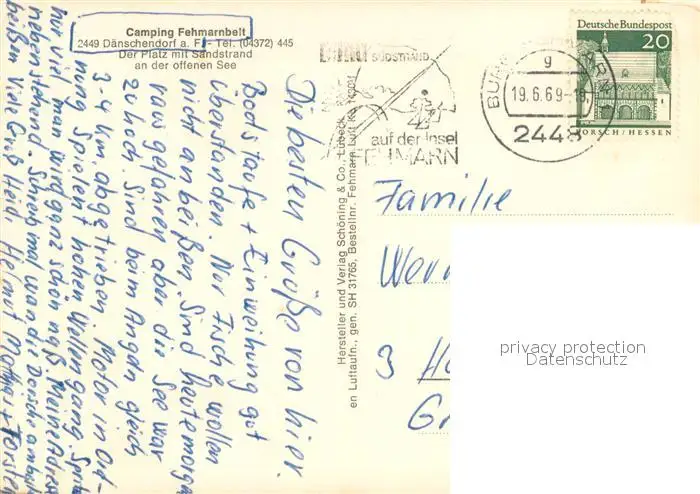 Camping Fehmarnbelt
2449 Dänschendorf a. F. - Tel. (04372) 445
Der Platz mit Sandstrand
an der offenen See
Die besten Grüße von hier.
Bodstaufe + Einweihung gut
überstanden. Nur Fische wollen
nicht anbeißen. Sind heutemorgen
rausgefahren aber die See war
zu hoch. Sind beim Angeln gleich
3-4 km abgetrieben. Motor in Ord-
nung. Spielend hohen Wellengang. Spritzt
nur viel, man wird ganz schön naß. Meine Adresse
nebenstehend. Schreib mal wan die Dorsche anbeißen
beißen. Viele Grüße Helmut
Hersteller und Verlag Schöning & Co., Lübeck
en Luftaufn., gen. SH 31765, Bestellnr. Fehmarn Luft
SÜDSTRAND
auf der Insel
FEHMARN
BUR
g
19.6.69-18
2448
Deutsche Bundespost
20
LORSCH/HESSEN
Familie
Wern
3 Ha
G
privacy protection
Datenschutz